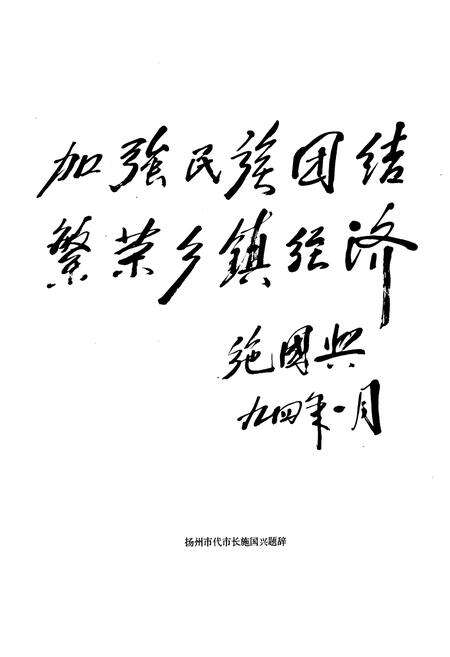 加强民族团结
繁荣乡鎮经济
施國兴
九四年一月
扬州市代市长施国兴题辞